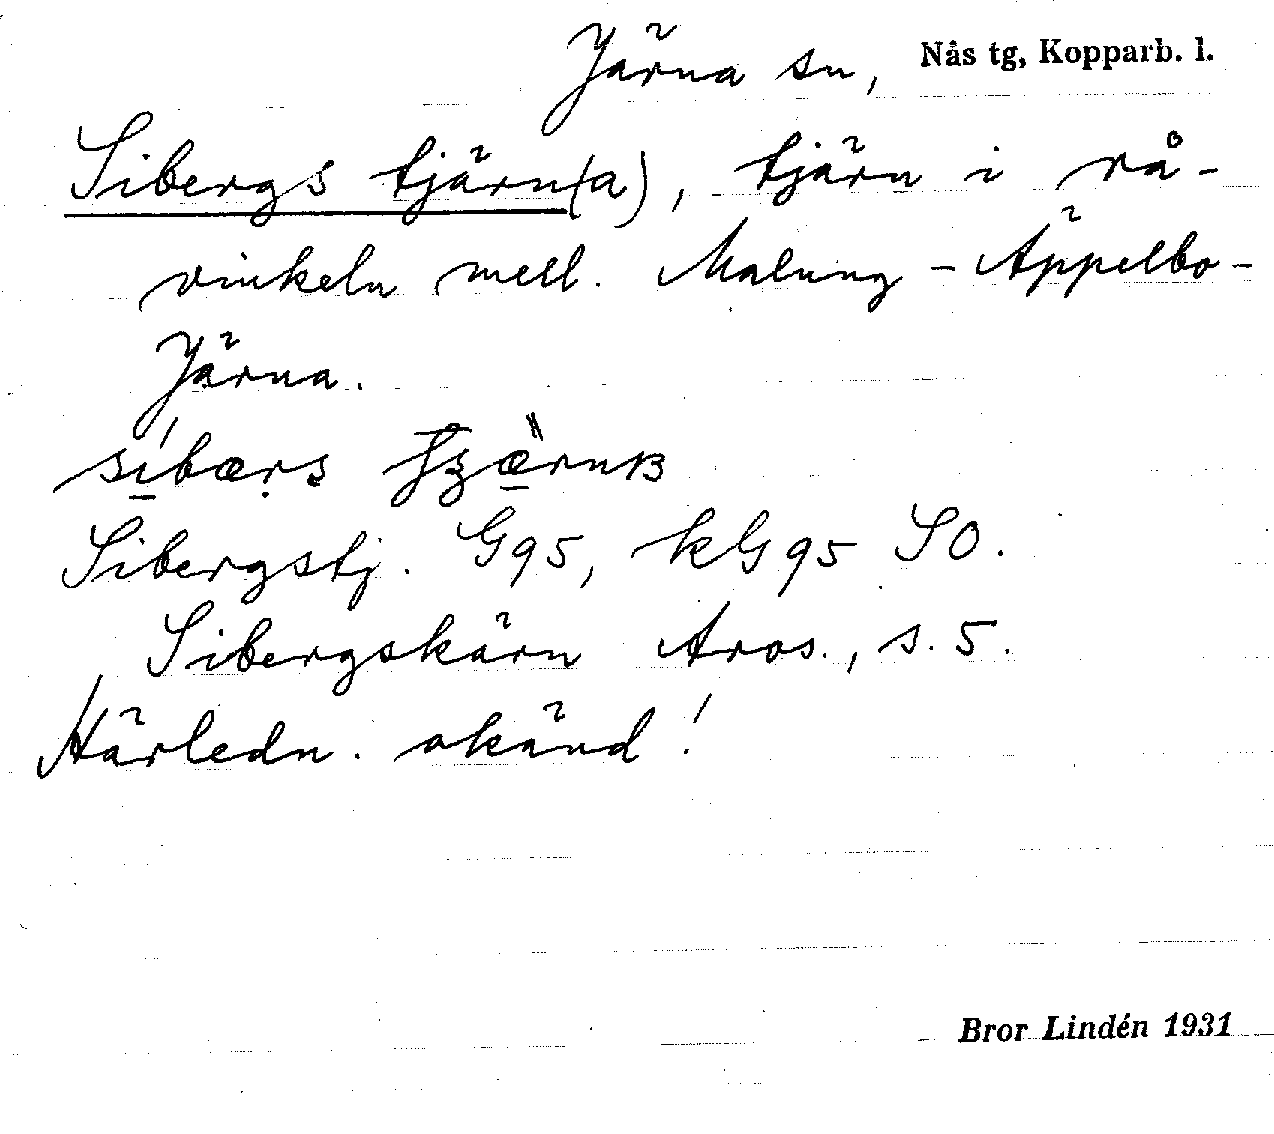 Järna sn, Nås tg, Kopparb. l.
Sibergs tjärn(a), tjärn i rå-
vinkeln mell. Malung - Äppelbo -
Järna.
síbærs
Sibergstj. G95, kG95 SO.
Sibergskärn Aros., s. 5.
Härledn. okänd!
Bror Lindén 1931